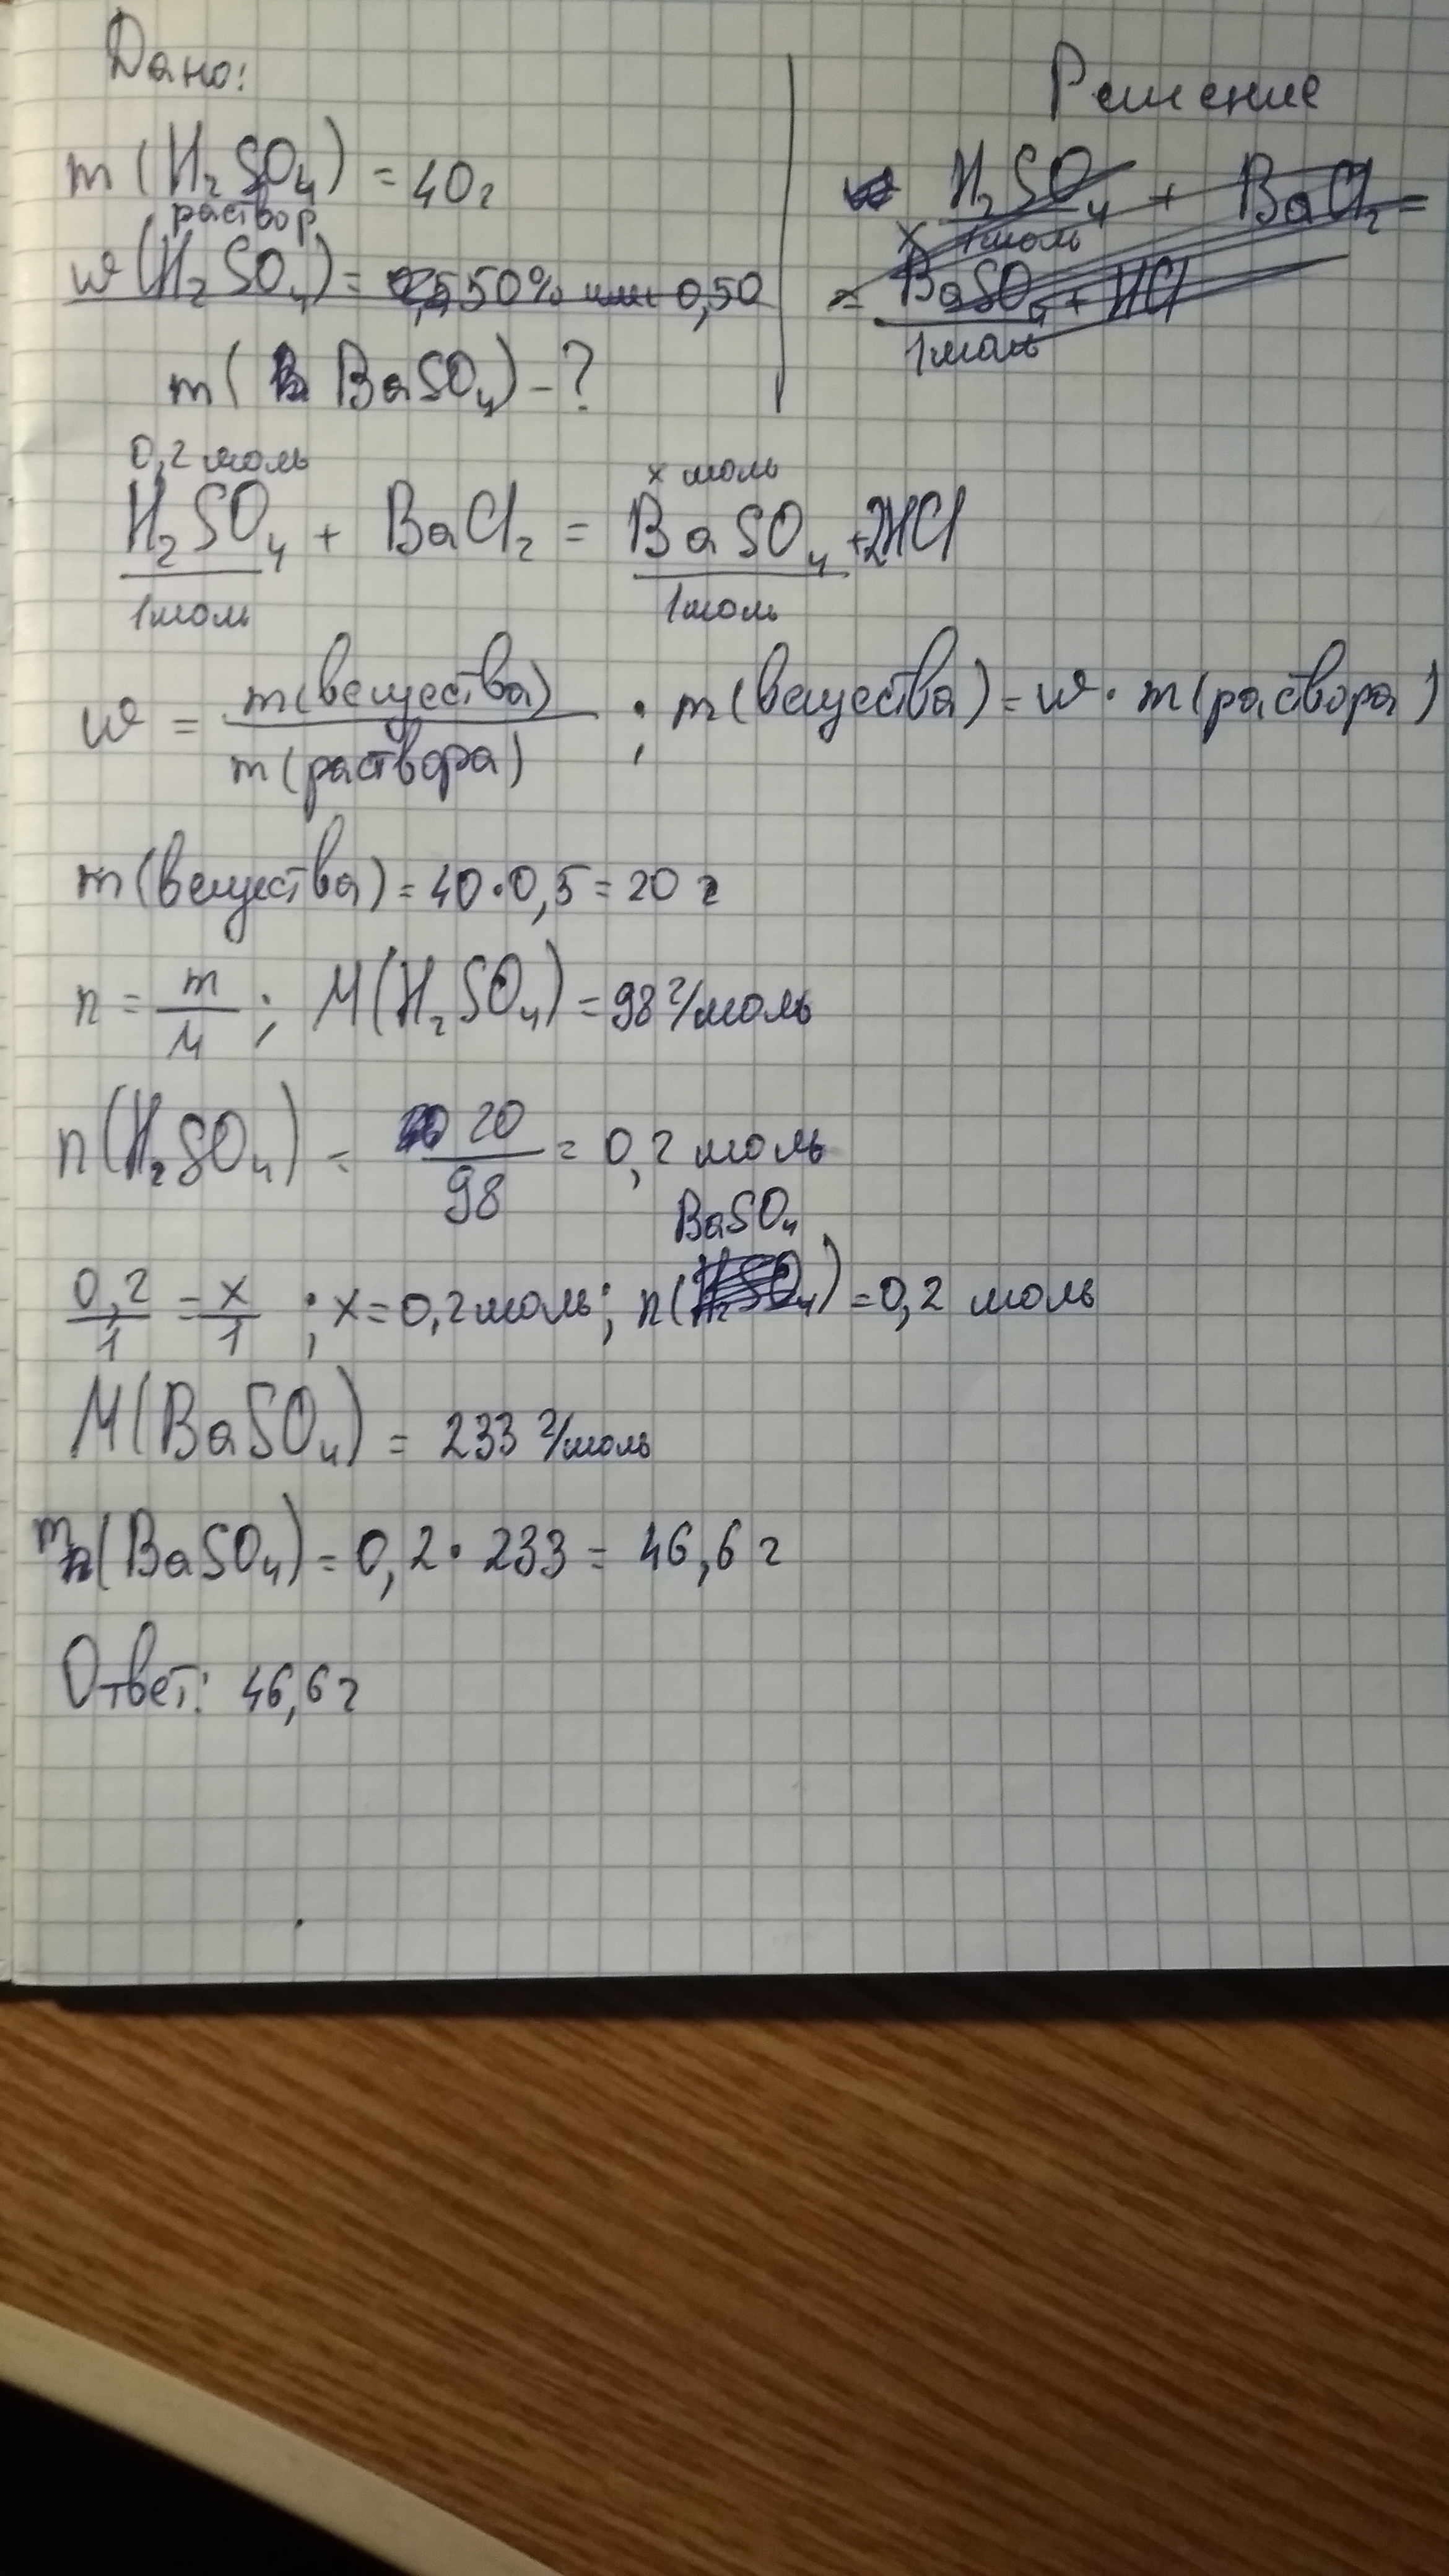 Дано:
m(H₂SO₄) = 40г
раствор
w(H₂SO₄) = 50% или 0,50
m(BaSO₄) - ?
Решение
H₂SO₄ + BaCl₂ =
x 1моль
= BaSO₄ + HCl
1моль
0,2 моль x моль
H₂SO₄ + BaCl₂ = BaSO₄ + 2HCl
1моль 1моль
w = m(вещества) / m(раствора) ; m(вещества) = w · m(раствора)
m(вещества) = 40 · 0,5 = 20 г
n = m / M ; M(H₂SO₄) = 98 г/моль
n(H₂SO₄) = 20 / 98 = 0,2 моль
BaSO₄
0,2 / 1 = x / 1 ; x = 0,2 моль; n(H₂SO₄) = 0,2 моль
M(BaSO₄) = 233 г/моль
m(BaSO₄) = 0,2 · 233 = 46,6 г
Ответ: 46,6 г